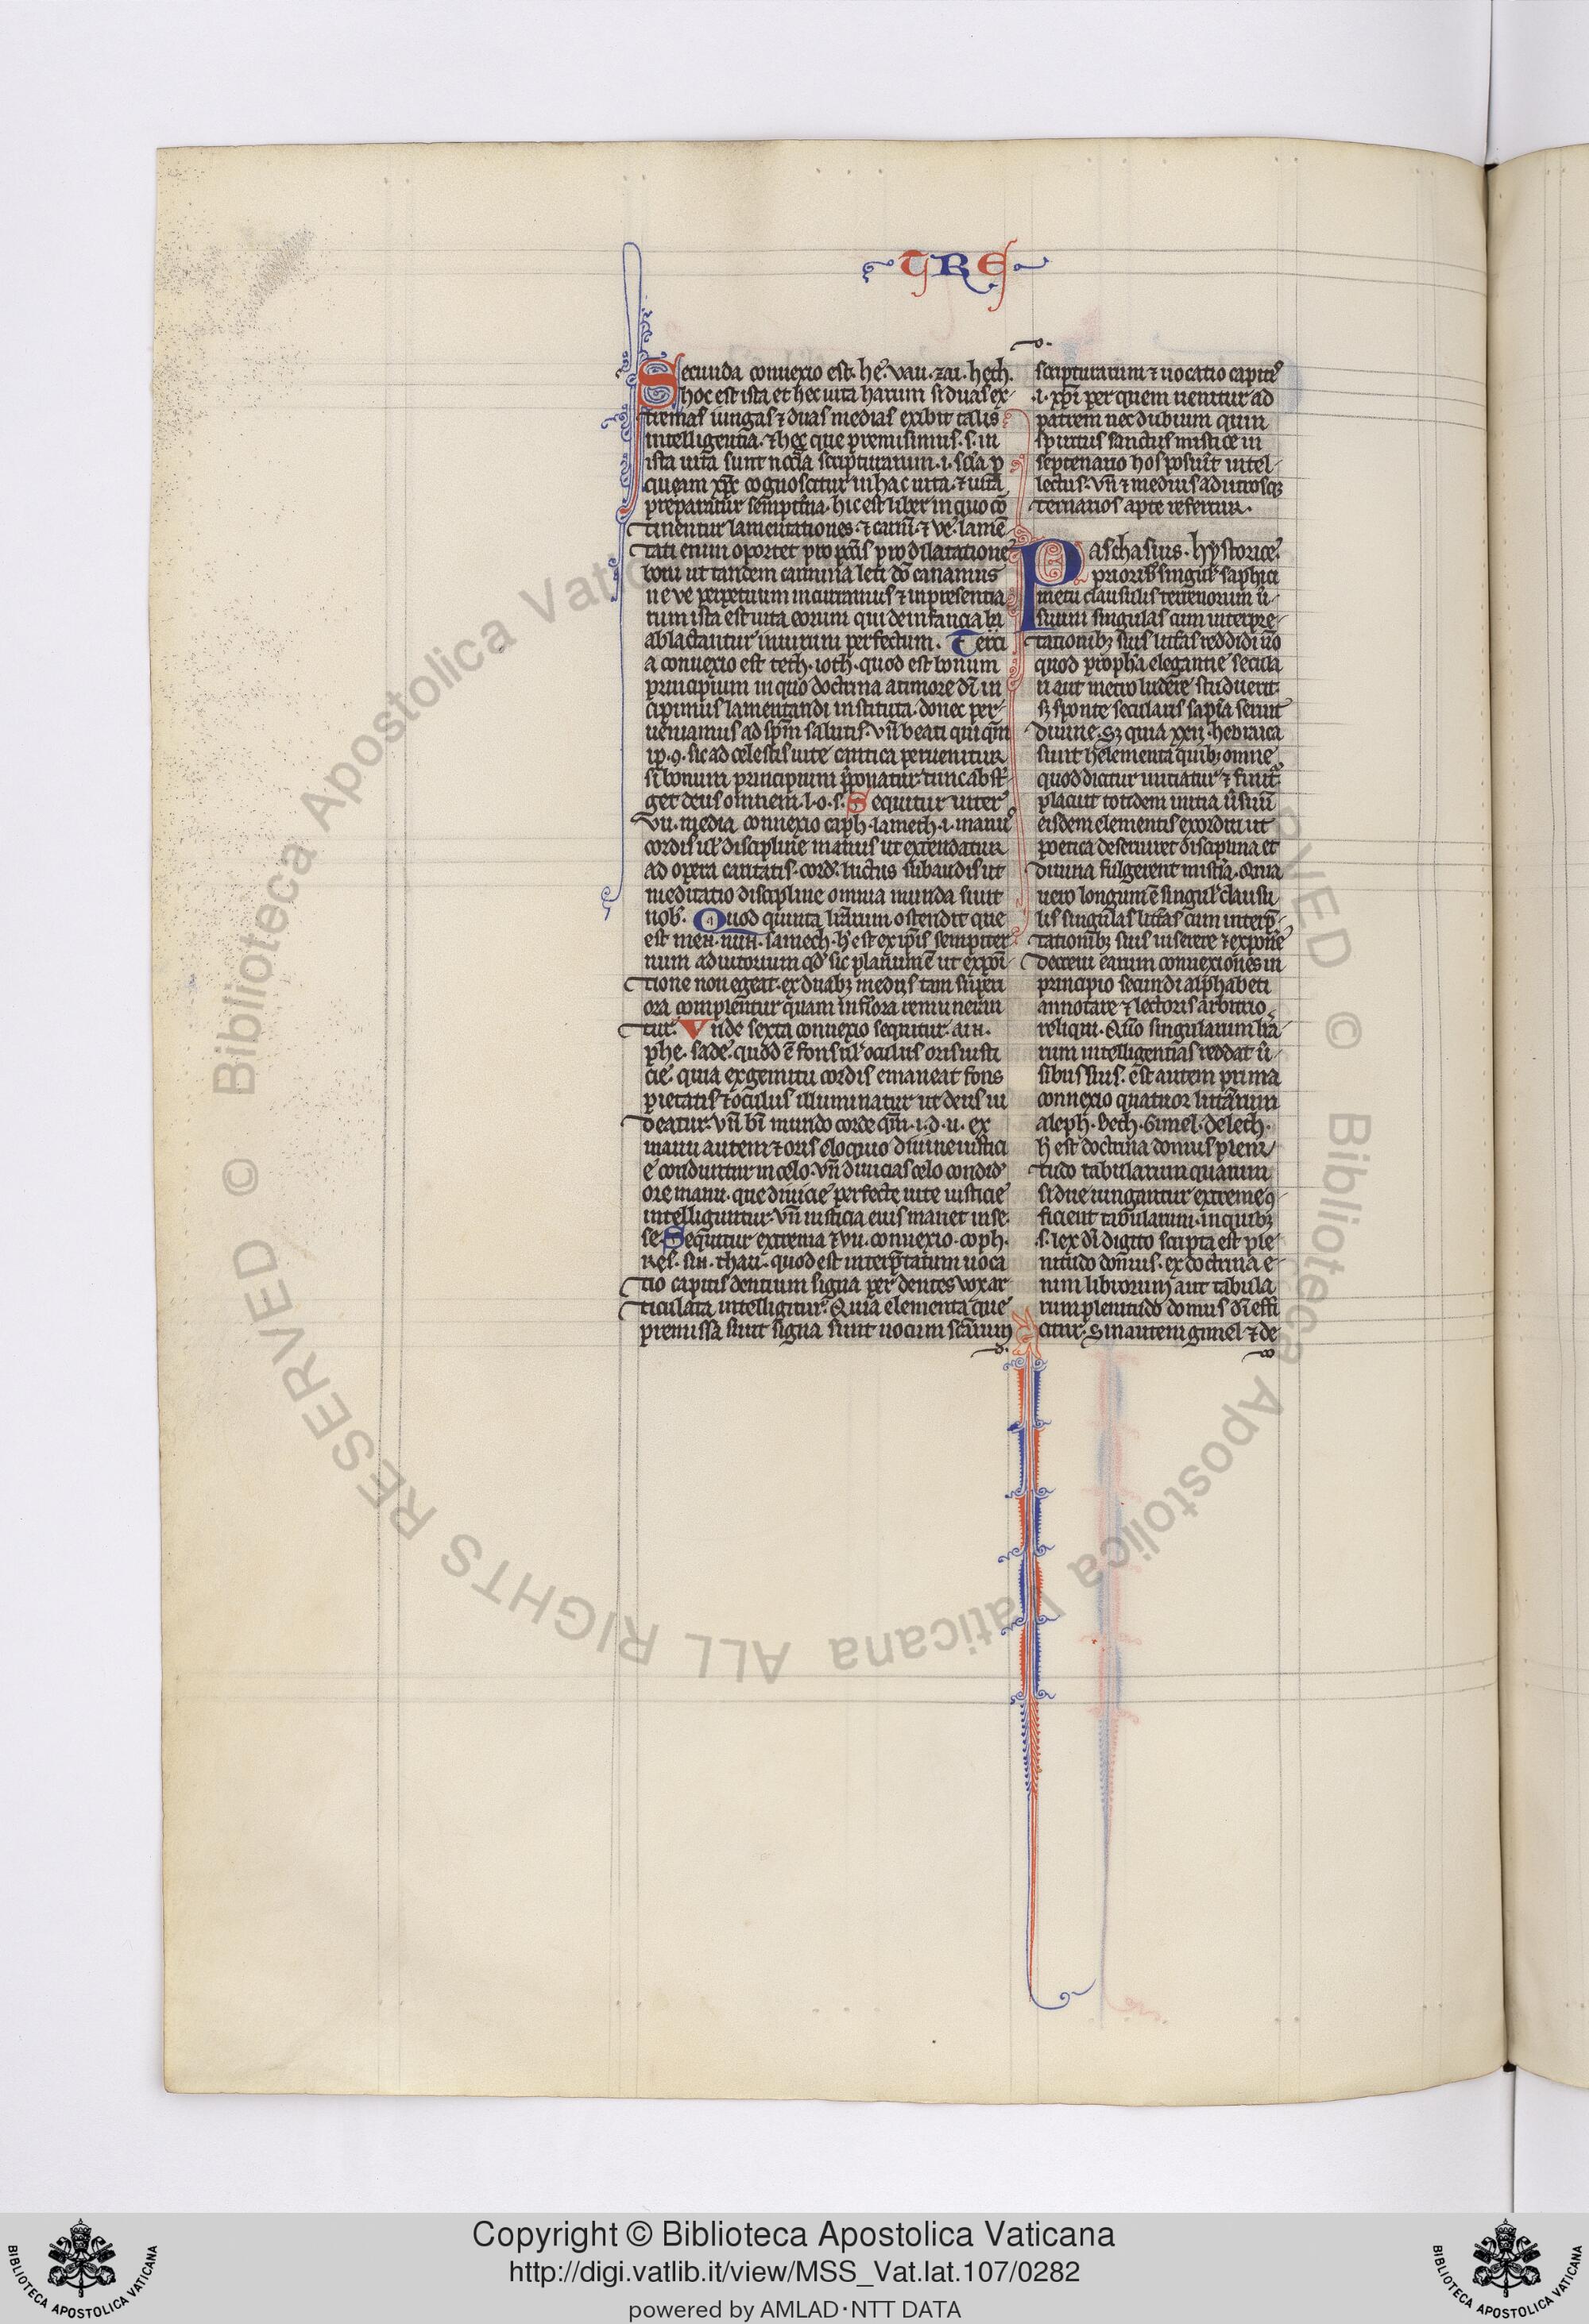 TRE
Secunda connexio est. he. vau. zai. heth.
hoc est ista et hec uita harum si duas ex-
tremas iungas ⁊ duas medias exibit talis
intelligentia. ⁊ hec que premisimus. s. in
ista uita sunt scripturarum .i. p
quem xp̄c cognoscitur in hac uita. ⁊ uita
preparatur sempit̄na. hic est liber in quo cō
tinentur lamentationes. ⁊ carm̄. ⁊ ve. lamē
tari enim oportet pro pro dilatatione
boni ut tandem carmina leti canamus
ne ve perpetuum incurramus ⁊ in presentia
rum ista est uita eorum qui de infancia
ablactantur in uirum perfectum. Terci
a connexio est teth. ioth. quod est bonum
principium in quo doctrina a timore dī in
cipimus lamentandi instituta. donec per-
ueniamus ad salutis. vn̄ beati qui
ip. 9. sic ad celestis uite cantica peruenitur
si bonum principium tunc abst̄
get deus omnem. l. o. s. Sequitur inter
vii. media connexio caph. lameth .i. manus
cordis ul' discipline manus ut extendatur
ad opera caritatis. cord. luctus subaudis ut
meditatio discipline omnia munda sunt
nob. Quod quinta ostendit que
est meN. nuN. samech. h' est ex ip̄is sempiter
num adiutorium sic planum ē ut exposi
tione non egeat. ex duab; mediis tam superi
ora complentur quam
tur. Vnde sexta connexio sequitur. aiN.
phe. sade. quod ē fons ul' oculus oris iusti
cie. quia ex gemitu cordis emaneat fons
pietatis ⁊ oculus illuminatur ut deus ui
deatur. vn̄ bī mundo corde qm̄ .i. d. u. ex
manu autem ⁊ oris eloquio diuine iustici
e conduntur in celo. vn̄ diuicias celo condid'
ore manu. que diuicie perfecte uite iusticie
intelliguntur. vn̄ iusticia eius manet in se.
se. Sequitur extrema ⁊ vii. connexio. coph.
res. siN. thau. quod est uoca
tio capitis dentium signa per dentes uox ar
ticulata intelligitur. Quia elementa que
premissa sunt signa sunt uocum
scripturarum ⁊ uocatio capitis
.i. xp̄i per quem uenitur ad
patrem nec dubium quin
spiritus sanctus mistice in
septenario hos intel-
lectus. vn̄ ⁊ medius ad utrosq;
ternarios apte refertur.
Paschasius. hystorice
priorib; saphici
metri clausulis terrenorum ū-
suum singulas cum interpre-
tationib; suis litt̄as reddidi ūo
quod propha elegantie secula
ri aut metro ludere studuerit.
s; sponte secularis sapīa seruit
diuine. s; quia xxij. hebraica
sunt helementa quib; omne
quod dicitur initiatur ⁊ finit̄.
placuit totidem initia ūsuū
eisdem elementis exordiri ut
poetica deseruiret disciplina et
diuina fulgerent mistīa. Quia
uero longum ē singul' clausu
lis singulas litt̄as cum interp̄-
tationib; suis inserere ⁊ exponē
decreui earum connexiones in
principio secundi alphabeti
annotare ⁊ lectoris arbitrio
reliqui. Quo singularum litt̄a-
rum intelligentias reddat ū-
sibus suis. est autem prima
connexio quatuor litt̄arum
aleph. beth. Gimel. deleth.
h' est doctrina domus pleni-
tudo tabularum quarum
si due iungantur extreme
ficient tabularum. in quib;
.s. lex dī digito scripta est ple-
nitudo domus. ex doctrina e-
nim librorum aut tabula
rum plenitudo domus dī effi
citur. Sin autem gimel ⁊ de
Copyright © Biblioteca Apostolica Vaticana
http://digi.vatlib.it/view/MSS_Vat.lat.107/0282
powered by AMLAD·NTT DATA
BIBLIOTECA APOSTOLICA VATICANA
BIBLIOTECA APOSTOLICA VATICANA
© Biblioteca Apostolica Vaticana ALL RIGHTS RESERVED